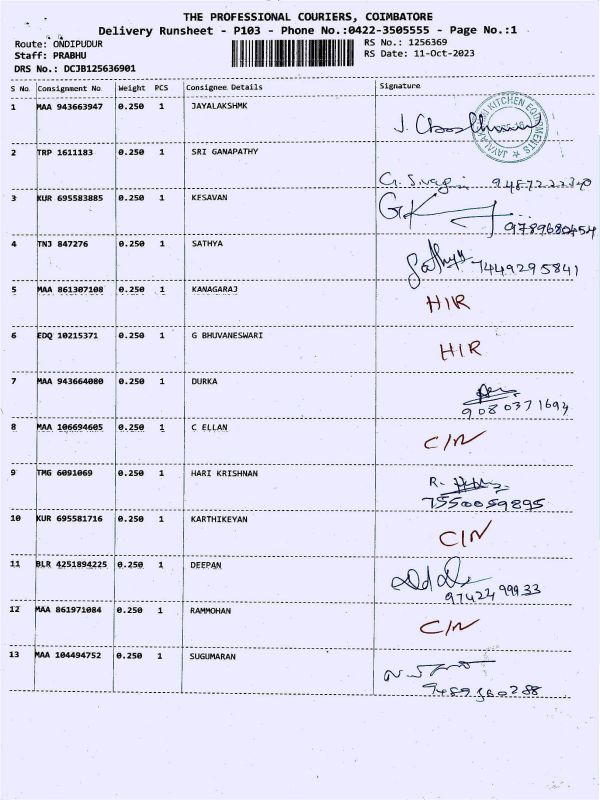 THE PROFESSIONAL COURIERS, COIMBATORE
Delivery Runsheet - P103 - Phone No.:0422-3505555 - Page No.:1
Route: ONDIPUDUR
RS No.: 1256369
Staff: PRABHU
RS Date: 11-Oct-2023
DRS No.: DCJB125636901
S No Consignment No Weight PCS Consignee Details Signature
1 MAA 943663947 0.250 1 JAYALAKSHMK J.
JAYALAKSHMI KITCHEN EQUIPMENTS
2 TRP 1611183 0.250 1 SRI GANAPATHY
G. 9487222340
3 KUR 695583885 0.250 1 KESAVAN GK
9789680454
4 TNJ 847276 0.250 1 SATHYA Sathya 7449295841
5 MAA 861307108 0.250 1 KANAGARAJ H/R
6 EDQ 10215371 0.250 1 G BHUVANESWARI H/R
7 MAA 943664080 0.250 1 DURKA
9080371694
8 MAA 106694605 0.250 1 C ELLAN C/N
9 TMG 6091069 0.250 1 HARI KRISHNAN R.
7550059895
10 KUR 695581716 0.250 1 KARTHIKEYAN C/N
11 BLR 4251894225 0.250 1 DEEPAN
9742499933
12 MAA 861971084 0.250 1 RAMMOHAN C/N
13 MAA 104494752 0.250 1 SUGUMARAN
9489360288